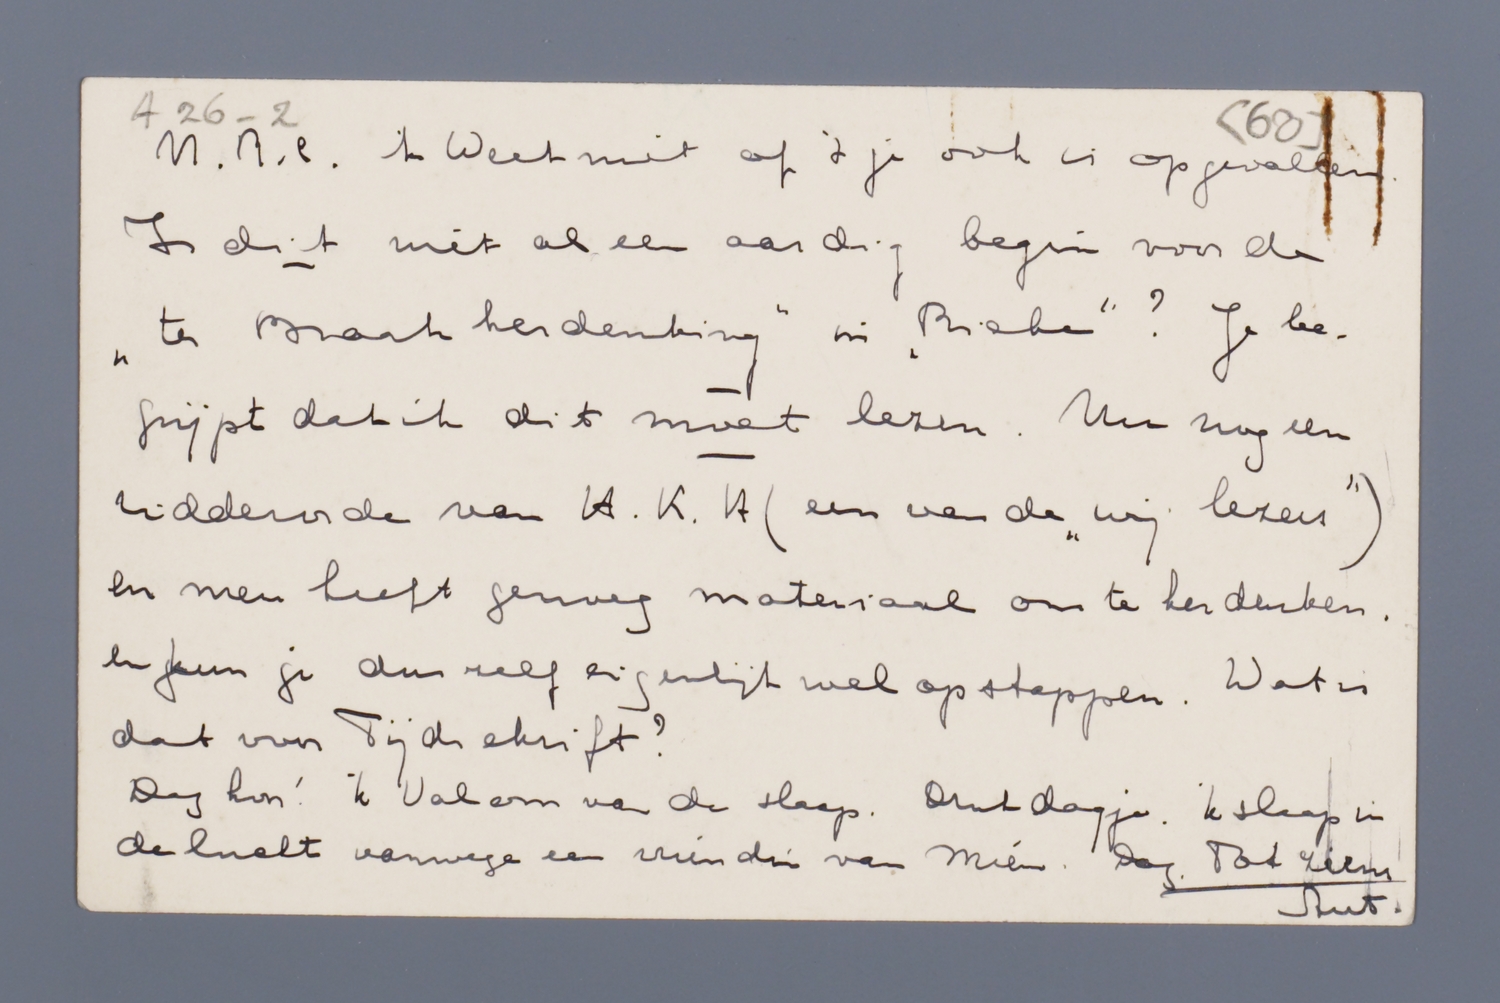 A 26-2
<60>
N.R.C. ik Weet niet of 't je ook is opgevallen.
Is dit niet al een aardig begin voor de
„ter Braak herdenking" in „Criterium"? Je be-
grijpt dat ik dit moet lezen. Nu nog een
ridderorde van H.K.H (een van de „wij lezers")
en men heeft genoeg materiaal om te herdenken.
en kun je dus zelf eigenlijk wel opstappen. Wat is
dat voor Tijdschrift?
Dag hoor! ik Val om van de slaap. Druk dagje. ik slaap in
de lucht vanwege een vriendin van Mien. Dag. Tot ziens